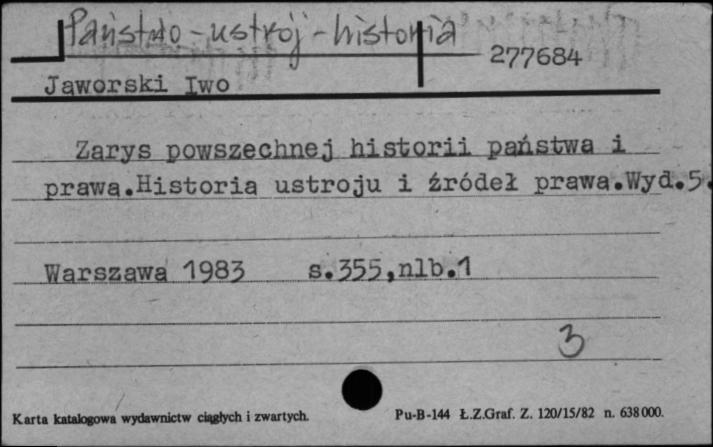 Państwo - ustrój - historia
277684
Jaworski Iwo
Zarys powszechnej historii państwa i
prawa.Historia ustroju i źródeł prawa.Wyd.5.
Warszawa 1983 s.355,nlb.1
3
Karta katalogowa wydawnictw ciągłych i zwartych. Pu-B-144 Ł.Z.Graf. Z. 120/15/82 n. 638000.